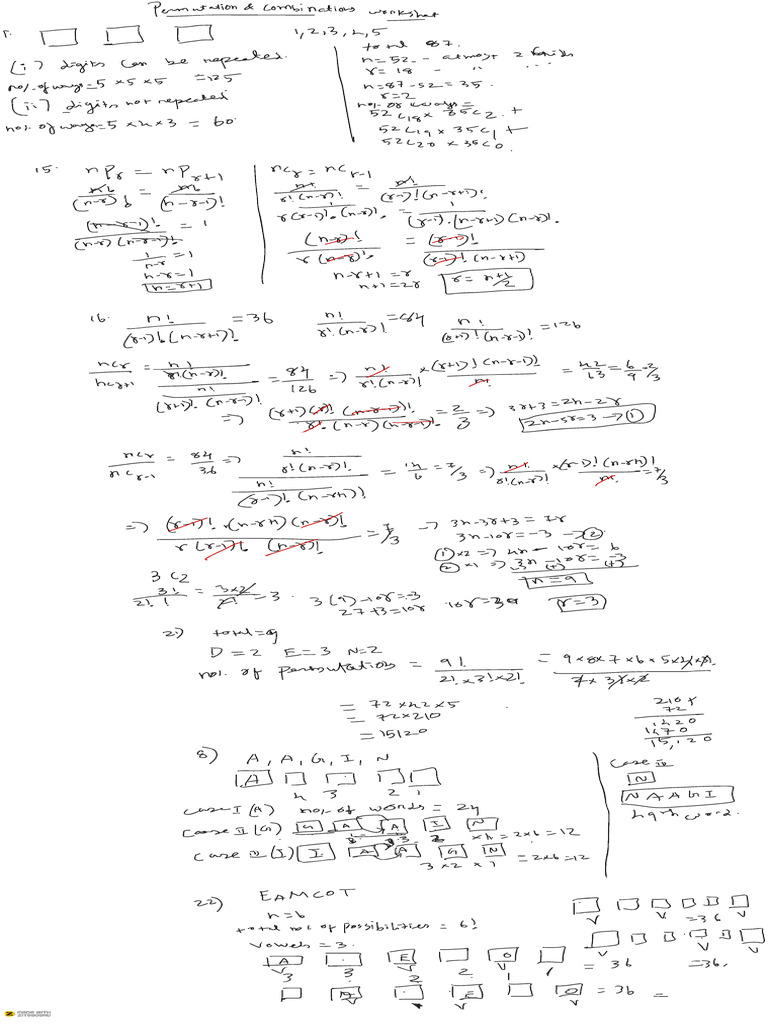 Permutation & Combinations worksheet
1. 1, 2, 3, 4, 5
(i) digits can be repeated
no. of ways = 5 × 5 × 5 = 125
(ii) digits not repeated
no. of ways = 5 × 4 × 3 = 60
total 87.
n = 52 - atmost 2
r = 18
n = 87 - 52 = 35.
r = 2
no. of ways =
52C18 × 35C2 +
52C19 × 35C1 +
52C20 × 35C0.
15. nPr = nPr+1
n!/(n-r)! = n!/(n-r-1)!
(n-r-1)!/(n-r)(n-r-1)! = 1
1/n-r = 1
n-r = 1
n = r+1
nCr = nCr-1
n!/r!(n-r)! = n!/(r-1)!(n-r+1)!
r(r-1)!.(n-r)! = 1/(r-1)!.(n-r+1)(n-r)!
(n-r)!/r(n-r)! = (r-1)!/(r-1)!(n-r+1)
n-r+1 = r
n+1 = 2r
r = n+1/2
16. n!/(r-1)!(n-r+1)! = 36 n!/r!(n-r)! = 84 n!/(r+1)!(n-r-1)! = 126
nCr/nCr+1 = n!/r!(n-r)! / n!/(r+1)!(n-r-1)! = 84/126 => n!/r!(n-r)! × (r+1)!(n-r-1)!/n! = 42/63 = 6/9 = 2/3
=> (r+1)(r)!(n-r-1)!/r!(n-r)(n-r-1)! = 2/3 => 3r+3 = 2n-2r
2n-5r = 3 → ①
nCr/nCr-1 = 84/36 => n!/r!(n-r)! / n!/(r-1)!(n-r+1)! = 14/6 = 7/3 => n!/r!(n-r)! × (r-1)!(n-r+1)!/n! = 7/3
=> (r-1)!.(n-r+1)(n-r)!/r(r-1)!(n-r)! = 7/3 → 3n-3r+3 = 7r
3n-10r = -3 → ②
① ×2 => 4n - 10r = 6
② ×1 => 3n - 10r = -3
n = 9
3C2
3!/2!1 = 3×2/2! = 3. 3(9)-10r = -3
27+3 = 10r 10r = 30 r = 3
21) total = 9
D = 2 E = 3 N = 2
no. of permutations = 9!/2!×3!×2! = 9×8×7×6×5×4×3!/4×3!×2
= 72×42×5
= 72×210
= 15120
210×
72
420
1470
15,120
8) A, A, G, I, N
A
4 3 2 1
case I (A) no. of words = 24
case II (G) G A A I N
×4 = 2×6 = 12
case III (I) I A A G N
3 × 2 × 1 = 2×6 = 12
case IV
N
N A A G I
49th word.
22) EAMCOT
n = 6
total no. of possibilities = 6!
vowels = 3.
A E O = 36
V V V
3 3 2 2 1 1
E O = 36 =
V V V
V V V = 36
V V V = 36.
MADE WITH
ZITEBOARD